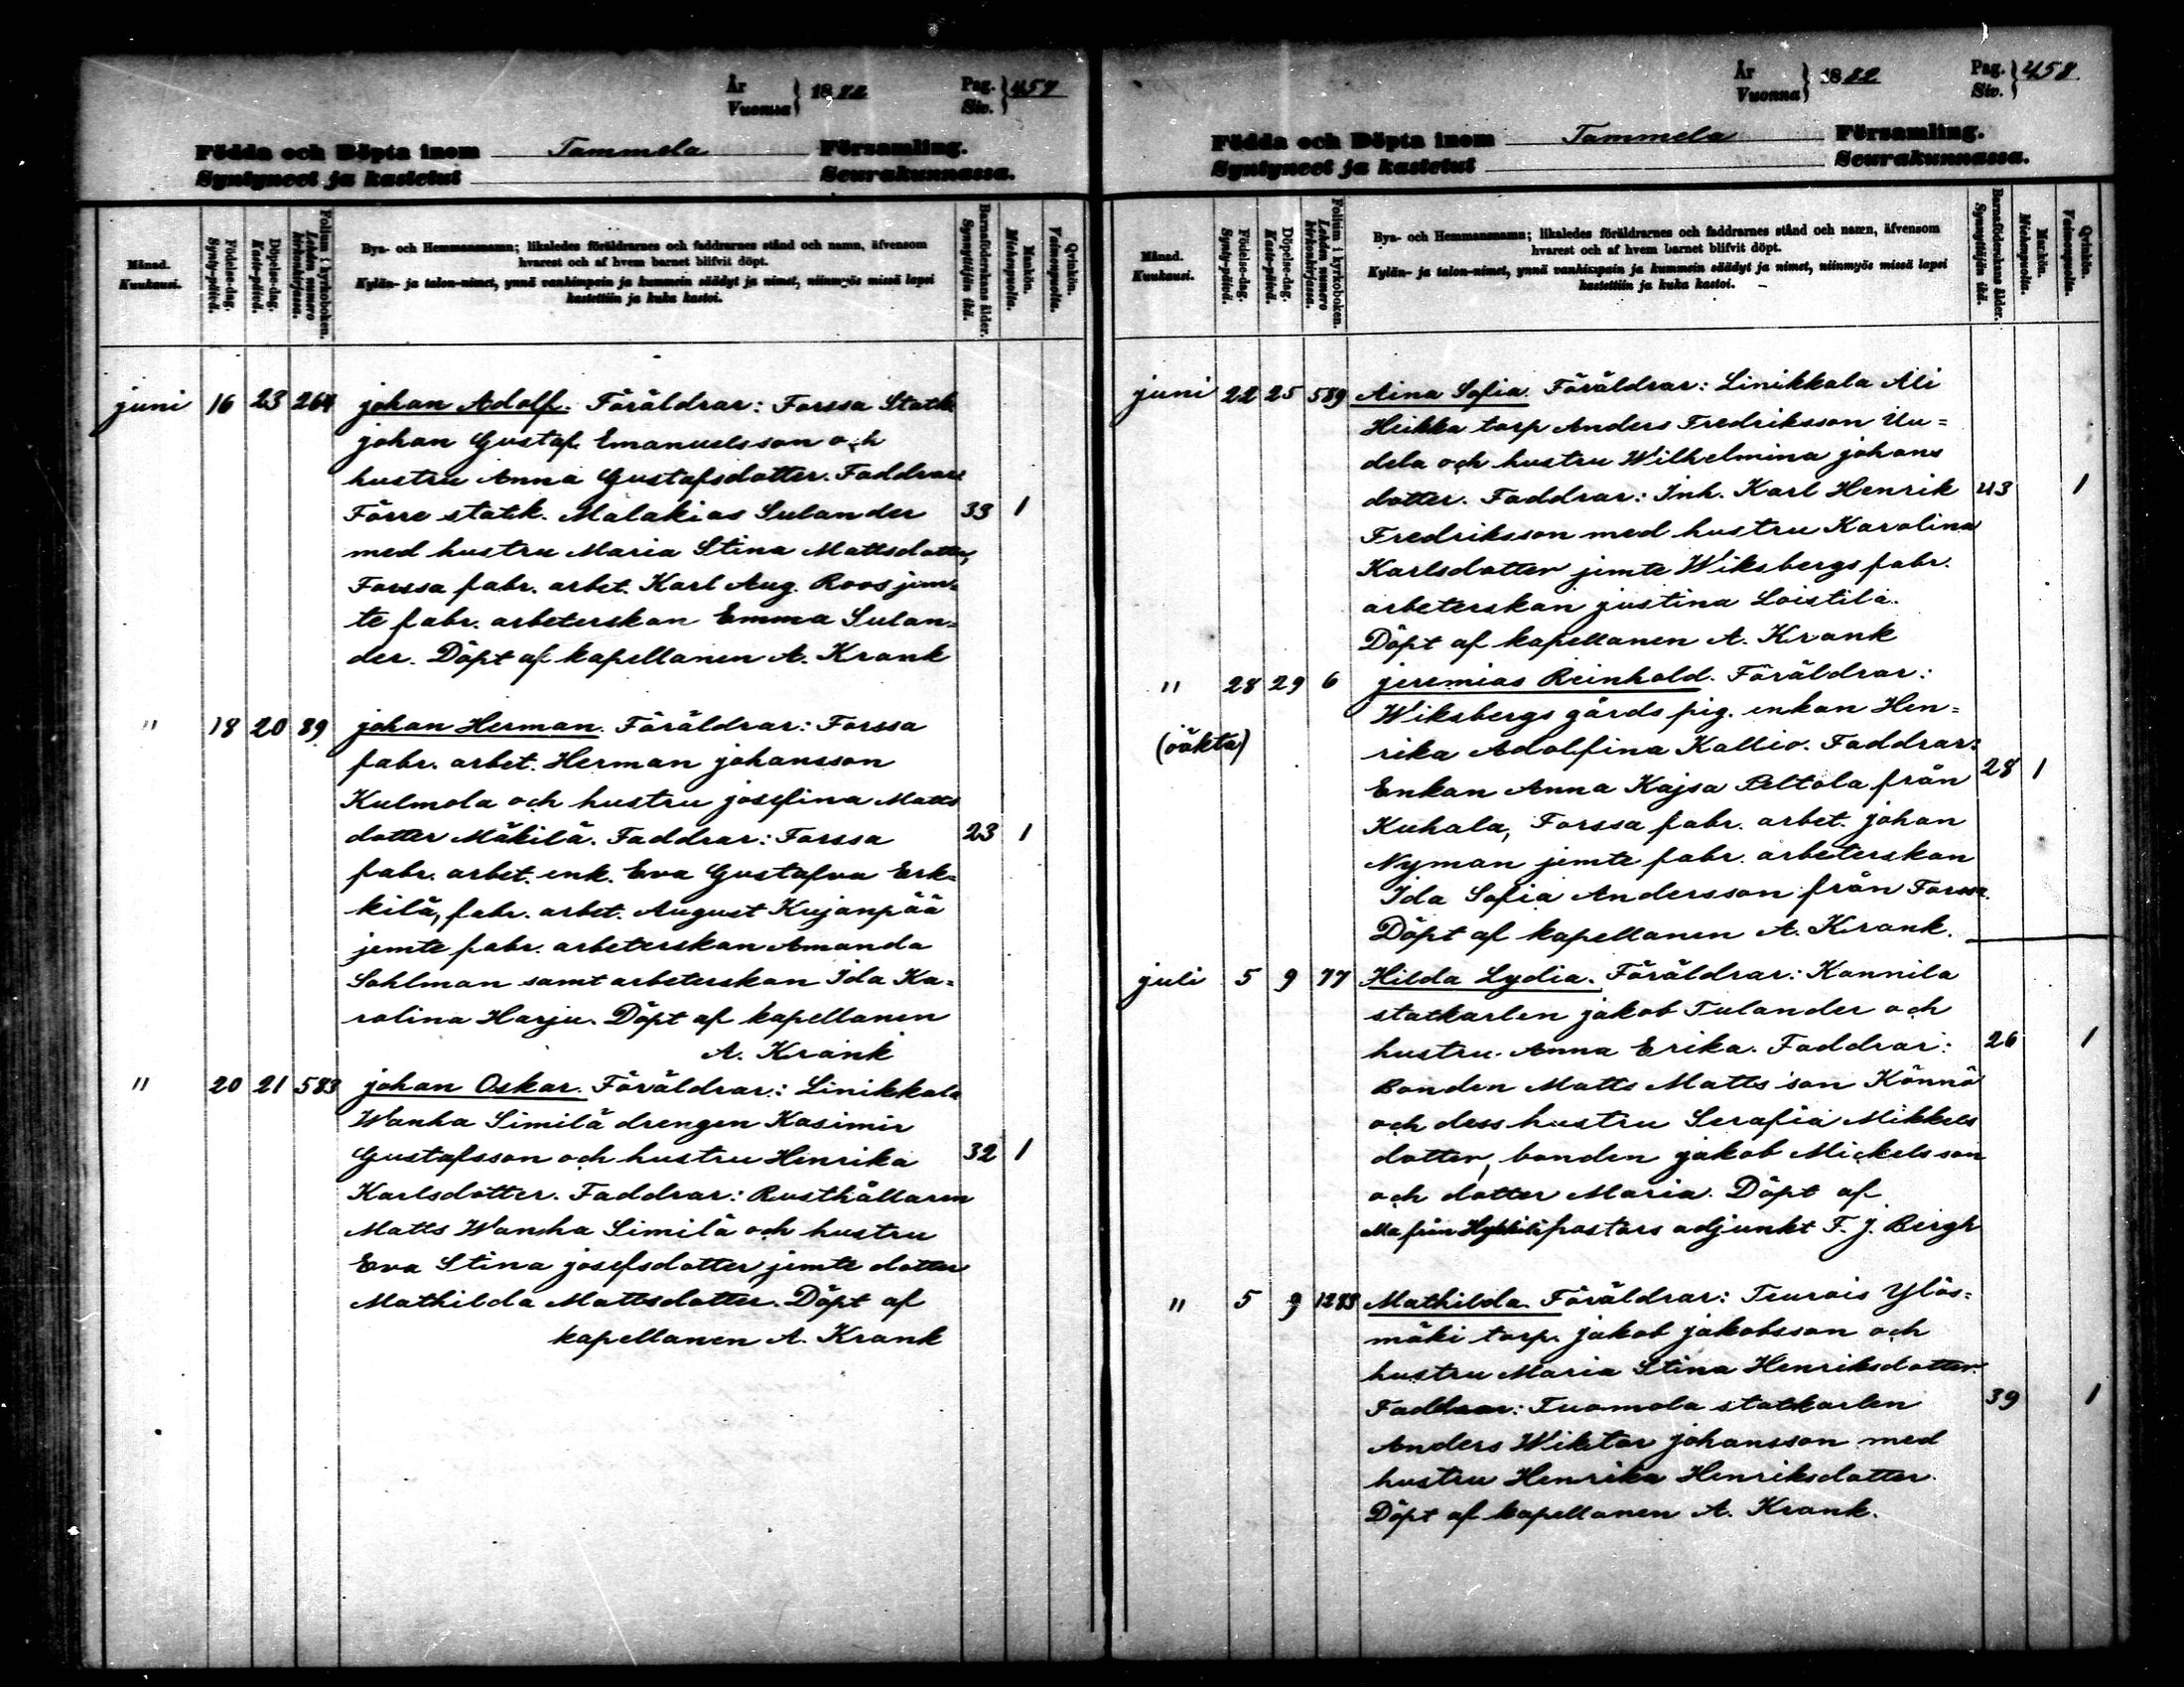 År
Vuonna
1882
Pag.
Siv.
457
Födda och Döpta inom Tammela Församling.
Syntyneet ja kastetut Seurakunnassa.
Månad.
Kuukausi.
Födelse-dag.
Synty-päivä.
Döpelse-dag.
Kaste-päivä.
Folium i kyrkoboken.
Lehden numero kirkonkirjassa.
Bya- och Hemmansnamn; likaledes föräldrarnes och faddrarnes stånd och namn, äfvensom
hvarest och af hvem barnet blifvit döpt.
Kylän- ja talon-nimet, ynnä vanhimpain ja kummein säädyt ja nimet, niinmyös missä lapsi
kastettiin ja kuka kastoi.
Barnaföderskans ålder.
Synnyttäjän ikä.
Mankön.
Miehenpuolia.
Qvinkön.
Vaimonpuolia.
juni 16 23 264 johan Adolf. Föräldrar: Forssa Statk.
johan Gustaf Emanuelsson och
hustru Anna Gustafsdotter. Faddrar:
Förre statk. Malakias Sulander 33 1
med hustru Maria Stina Mattsdotter,
Forssa fabr. arbet. Karl Aug. Roos jem-
te fabr. arbeterskan Emma Sulan=
der. Döpt af kapellanen A. Krank
" 18 20 89 johan Herman. Föräldrar: Forssa
fabr. arbet. Herman johansson
Kulmola och hustru josefina Matts
dotter Mäkilä. Faddrar: Forssa 23 1
fabr. arbet. enk. Eva Gustafva Erk=
kilä, fabr. arbet. August Kujanpää
jemte fabr. arbeterskan Amanda
Sahlman samt arbeterskan Ida Ka=
rolina Harju. Döpt af kapellanen
A. Krank
" 20 21 583 johan Oskar. Föräldrar: Linikkala
Wanha Similä drengen Kasimir
Gustafsson och hustru Henrika 32 1
Karlsdotter. Faddrar: Rusthållaren
Matts Wanha Similä och hustru
Eva Stina josefsdotter jemte dotter
Mathilda Mattsdotter. Döpt af
kapellanen A. Krank
År
Vuonna
1882
Pag.
Siv.
458
Födda och Döpta inom Tammela Församling.
Syntyneet ja kastetut Seurakunnassa.
Månad.
Kuukausi.
Födelse-dag.
Synty-päivä.
Döpelse-dag.
Kaste-päivä.
Folium i kyrkoboken.
Lehden numero kirkonkirjassa.
Bya- och Hemmansnamn; likaledes föräldrarnes och faddrarnes stånd och namn, äfvensom
hvarest och af hvem barnet blifvit döpt.
Kylän- ja talon-nimet, ynnä vanhimpain ja kummein säädyt ja nimet, niinmyös missä lapsi
kastettiin ja kuka kastoi.
Barnaföderskans ålder.
Synnyttäjän ikä.
Mankön.
Miehenpuolia.
Qvinkön.
Vaimonpuolia.
juni 22 25 589 Aina Sofia. Föräldrar: Linikkala Ali
Heikka torp Anders Fredriksson Uu=
dela och hustru Wilhelmina johans
dotter. Faddrar: Inh. Karl Henrik 43 1
Fredriksson med hustru Karolina
Karlsdotter jemte Wiksbergs fabr.
arbeterskan justina Loistila.
Döpt af kapellanen A. Krank
" 28 29 6 jeremias Reinhold. Föräldrar:
Wiksbergs gårds pig. enkan Hen=
(oäkta) rika Adolfina Kallio. Faddrar:
Enkan Anna Kajsa Peltola från 28 1
Kuhala, Forssa fabr. arbet. johan
Nyman jemte fabr. arbeterskan
Ida Sofia Andersson från Forssa.
Döpt af kapellanen A. Krank.
juli 5 9 77 Hilda Lydia. Föräldrar: Kannila
statkarlen jakob Tulander och
hustru Anna Erika. Faddrar: 26 1
Bonden Matts Matts son Könnö
och dess hustru Serafia Mikkels
dotter, bonden jakob Mickelsson
och dotter Maria. Döpt af
från pastors adjunkt F. J. Bergh
" 5 9 1283 Mathilda. Föräldrar: Teurois Ylös=
mäki torp. jakob jakobsson och
hustru Maria Stina Henriksdotter.
Faddrar: Tuomola statkarlen 39 1
Anders Wiktor johansson med
hustru Henrika Henriksdotter.
Döpt af kapellanen A. Krank.